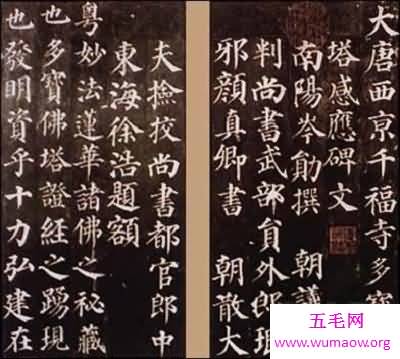 大唐西京千福寺多寶
塔感應碑文
南陽岑勛撰 朝議
判尚書武部員外郎琅
邪顏真卿書 朝散大
夫撿挍尚書都官郎中
東海徐浩題額
粵妙法蓮華諸佛之秘藏
也多寶佛塔證經之踴現
也發明資乎十力弘建在
五毛网
www.wumaow.org